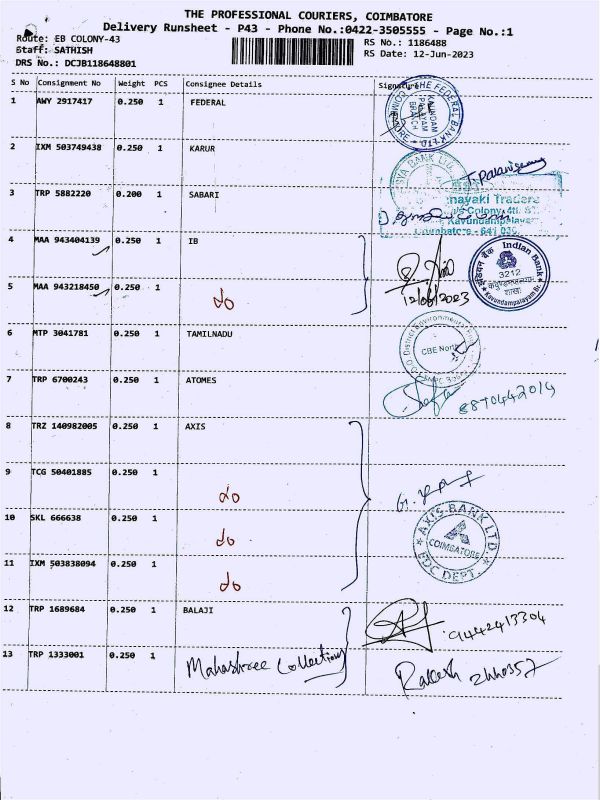 THE PROFESSIONAL COURIERS, COIMBATORE
Delivery Runsheet - P43 - Phone No.:0422-3505555 - Page No.:1
Route: EB COLONY-43
RS No.: 1186488
Staff: SATHISH
RS Date: 12-Jun-2023
DRS No.: DCJB118648801
S No Consignment No Weight PCS Consignee Details Signature
1 AWY 2917417 0.250 1 FEDERAL
THE FEDERAL BANK LTD.
BRANCH
2 IXM 503749438 0.250 1 KARUR
BANK LTD
3 TRP 5882220 0.200 1 SABARI
nayaki Traders
Colony
Kavundampalayam
4 MAA 943404139 0.250 1 IB
12/06/2023
Indian Bank
3212
शाखा
Kavundampalayam Br.
5 MAA 943218450 0.250 1 do
6 MTP 3041781 0.250 1 TAMILNADU
District Environmental
CBE North
7 TRP 6700243 0.250 1 ATOMES
8870442014
8 TRZ 140982005 0.250 1 AXIS
9 TCG 50401885 0.250 1
do
10 SKL 666638 0.250 1
do
AXIS BANK LTD.
COIMBATORE
EDC DEPT.
11 IXM 503838094 0.250 1
do
12 TRP 1689684 0.250 1 BALAJI
9442413304
13 TRP 1333001 0.250 1 Mahashree Collections
Rakesh